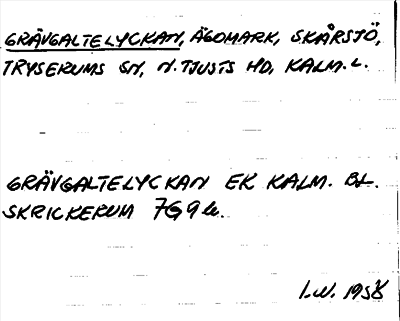 GRÄVGALTELYCKAN, ÄGOMARK, SKÅRSJÖ,
TRYSERUMS SN, N. TJUSTS HD, KALM. L.
GRÄVGALTELYCKAN EK KALM. BL.
SKRICKERUM 7G 9b.
I.W. 1958